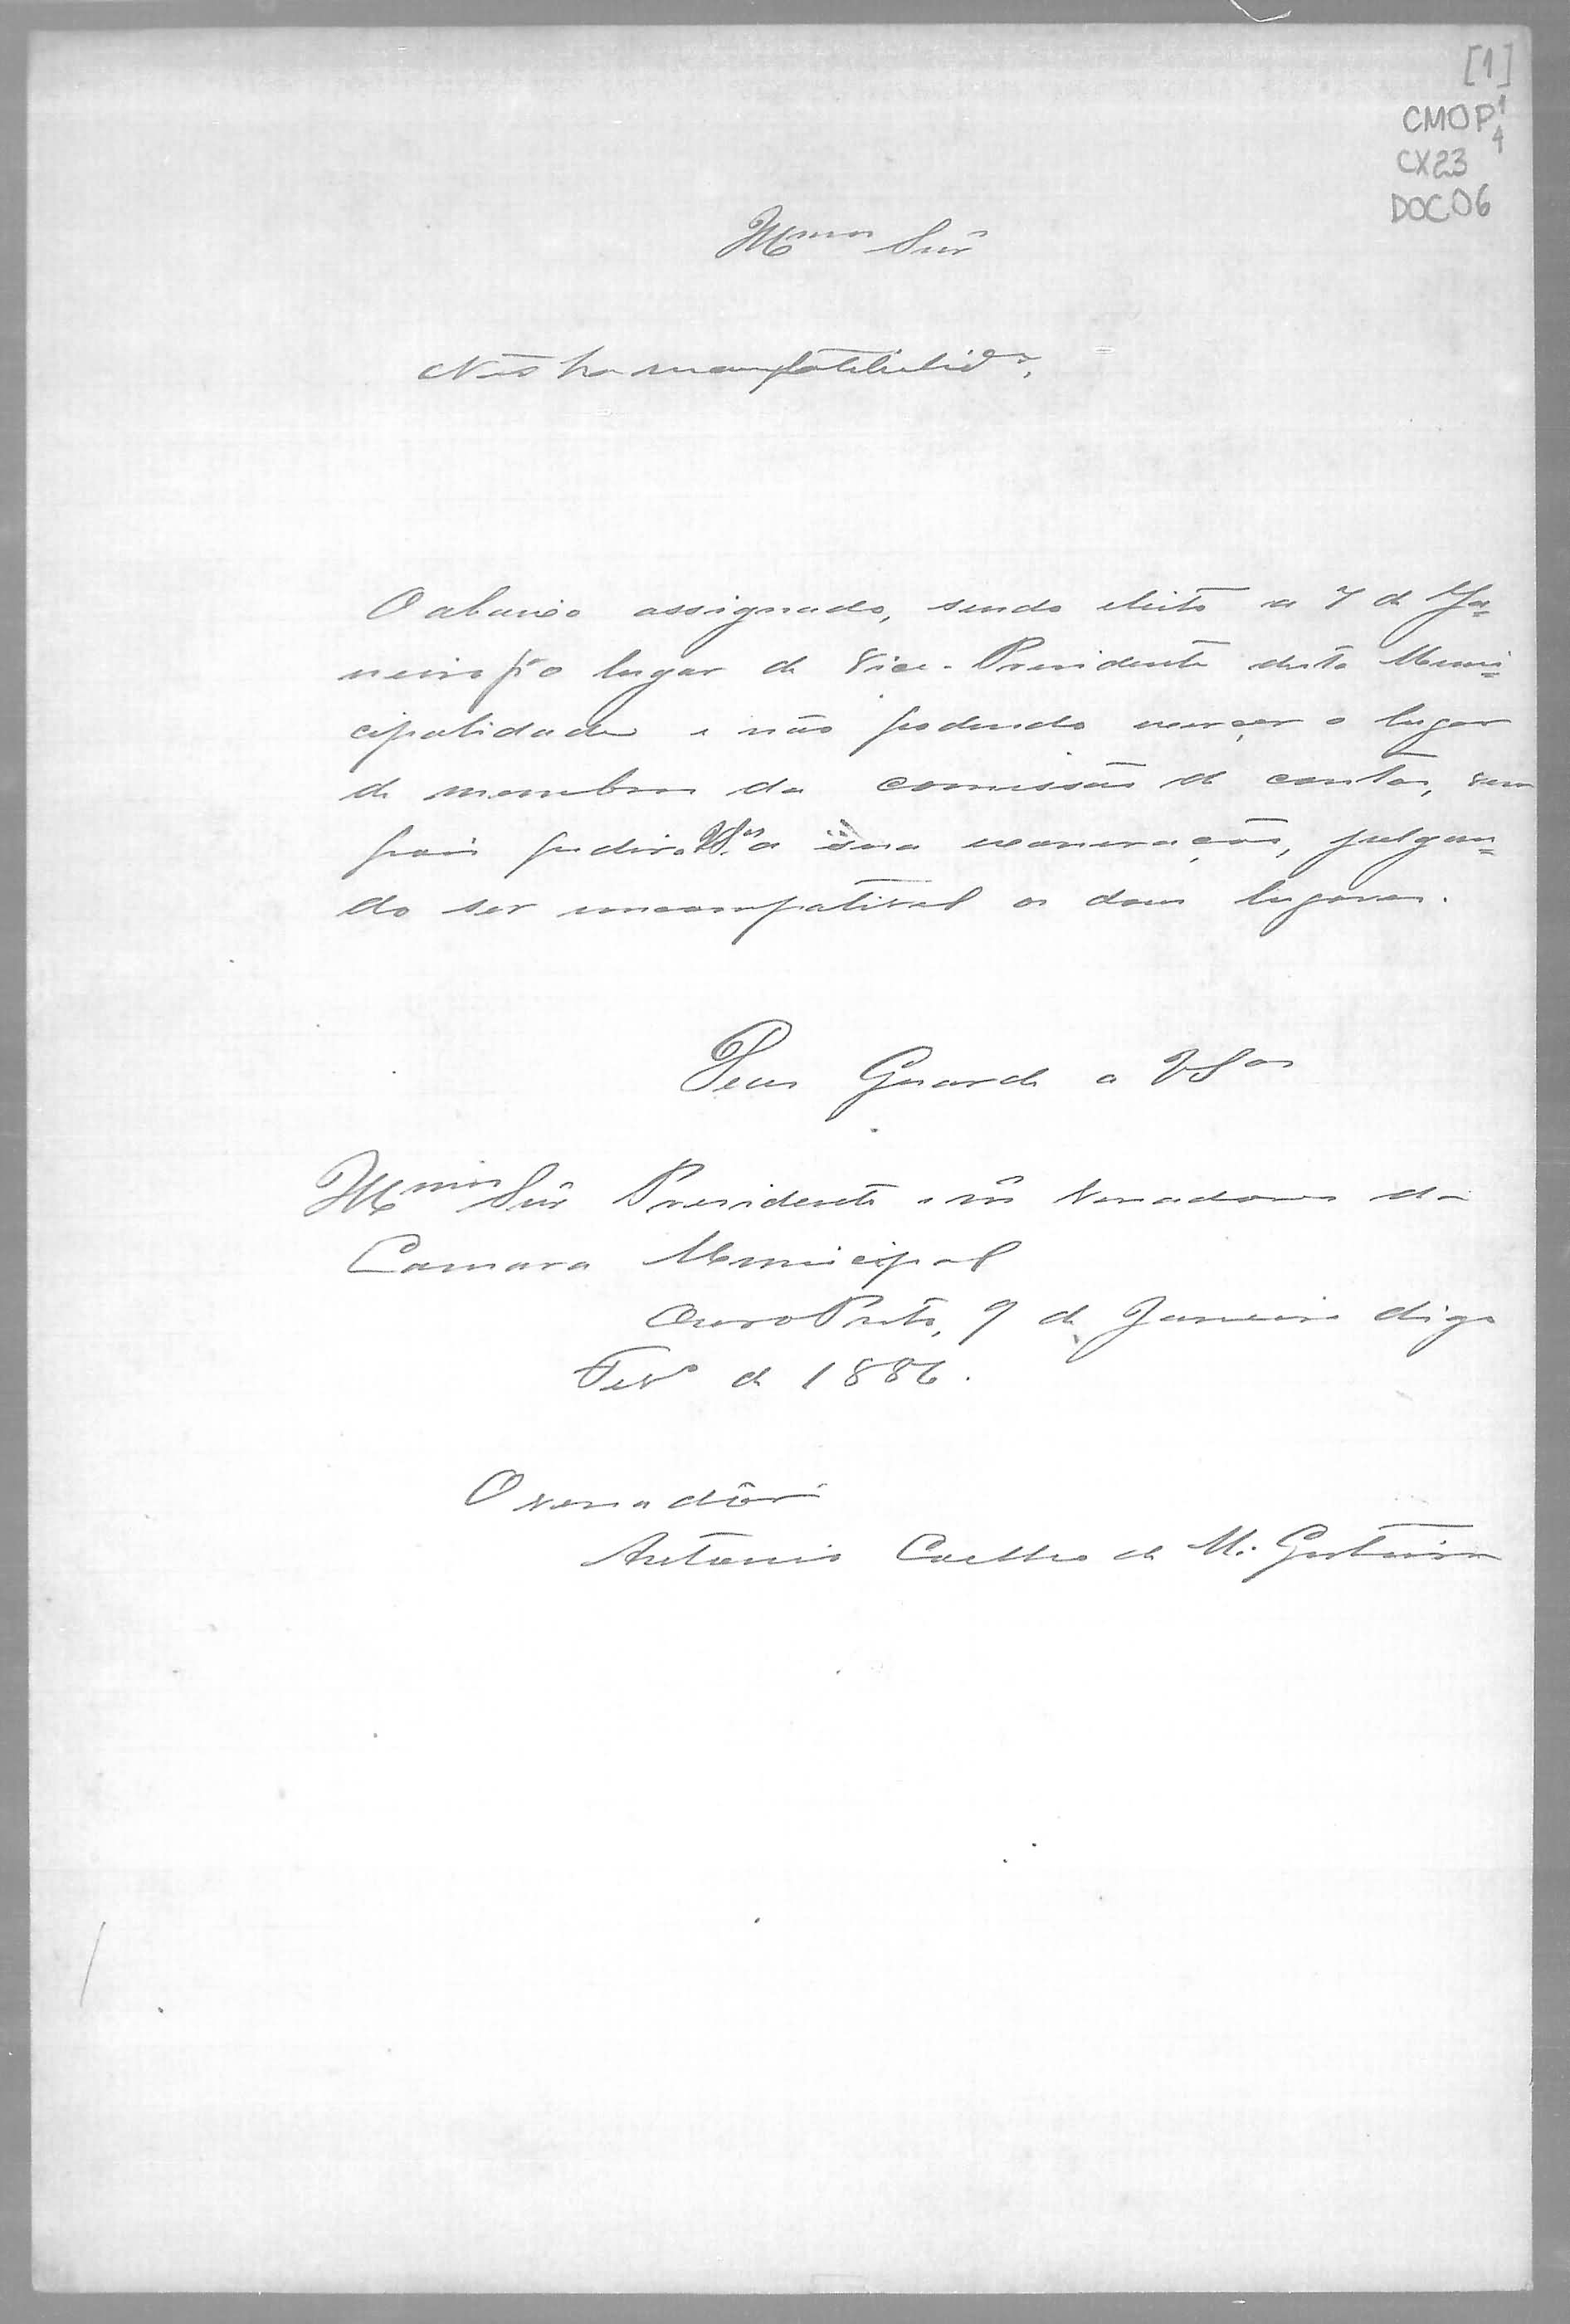 [1]
CMOP 1/4
CX23
DOC06
Illmos Snr
Não ha incompatibilide.
O abaixo assignado, sendo eleito a 7 de Ja=
neiro pa o lugar de Vice-Presidente desta Muni=
cipalidade e não podendo exerçer o lugar
de membro da comissão de contas, vem
pois pedir a VSas a sua exoneração, julgan=
do ser incompativel os dous lugares.
Deus Guarde a VSas
Illmos Snr Presidente e Vereadores da
Camara Municipal
Ouro Preto, 9 de Janeiro digo
Fevo de 1886.
O vereadôr
Antonio Coelho de M.